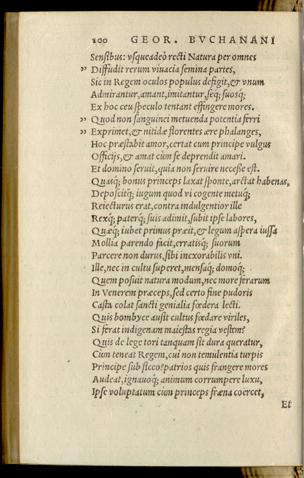 200 GEOR. BVCHANANI
Sensibus: vsqueadeò recti Natura per omnes
" Diffudit rerum viuacia semina partes,
Sic in Regem oculos populus defigit, & vnum
Admirantur, amant, imitantur, seq; suosq;
Ex hoc ceu speculo tentant effingere mores.
" Quod non sanguinei metuenda potentia ferri
" Exprimet, & nitidæ florentes ære phalanges,
Hoc præstabit amor, certat cum principe vulgus
Officijs, & amat cùm se deprendit amari.
Et domino seruit, quia non seruire necesse est.
Quasq; bonus princeps laxat sponte, arctat habenas,
Deposcitq; iugum quod vi cogente negauit
Reiecturus erat, contra indulgentior ille
Rexq; paterq; suis adimit, subit ipse labores,
Quæq; iubet primus præit, & legum aspera iussa
Mollia parendo facit, erratisq; suorum
Parcere non durus, sibi inexorabilis vni.
Ille, nec in cultu superet, mensaq; domoq;
Quem posuit natura modum, nec more ferarum
In Venerem præceps, sed certo fine pudoris
Casta colat sancti genialia fœdera lecti.
Quis bombyce ausit cultus fœdare viriles,
Si ferat indigenam maiestas regia vestem?
Quis de lege tori tanquam sit dura queratur,
Cùm teneat Regem, cui non temulentia turpis
Principe sub sicco? patrios quis frangere mores
Audeat, ignauoq; animum corrumpere luxu,
Ipse voluptatum cùm princeps fræna coërcet,
Et